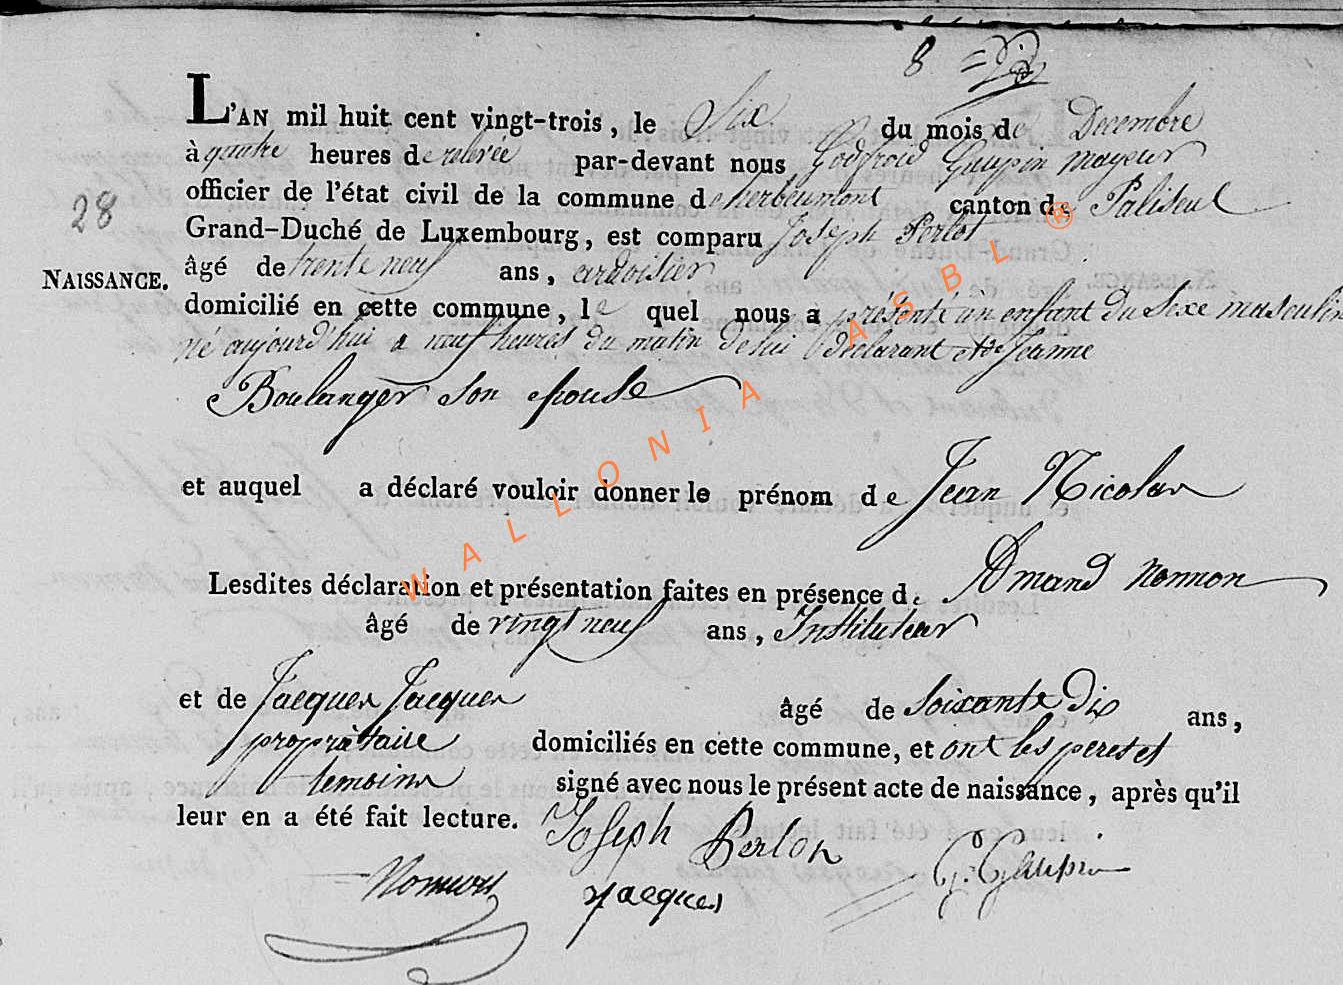 8
L'AN mil huit cent vingt-trois, le Six du mois de Decembre
à quatre heures de relevée par-devant nous Godfroid Gaupin mayeur
officier de l'état civil de la commune de herbeumont canton de Paliseul
28
Grand-Duché de Luxembourg, est comparu Joseph Perlot
NAISSANCE. âgé de trente neuf ans, ardoisier
domicilié en cette commune, le quel nous a présenté un enfant du Sexe masculin
né aujourd'hui a neuf heures du matin de lui Déclarant et de Jeanne
Boulanger son epouse
et auquel a déclaré vouloir donner le prénom de Jean Nicolas
Lesdites déclaration et présentation faites en présence de Amand nonnon
âgé de vingt neuf ans, Instituteur
et de Jacques Jacques âgé de soixante Dix ans,
propriétaire domiciliés en cette commune, et ont les pere et
temoins signé avec nous le présent acte de naissance, après qu'il
leur en a été fait lecture. Joseph Perlot
Jacques G. Gaupin
WALLONIA ASBL ®